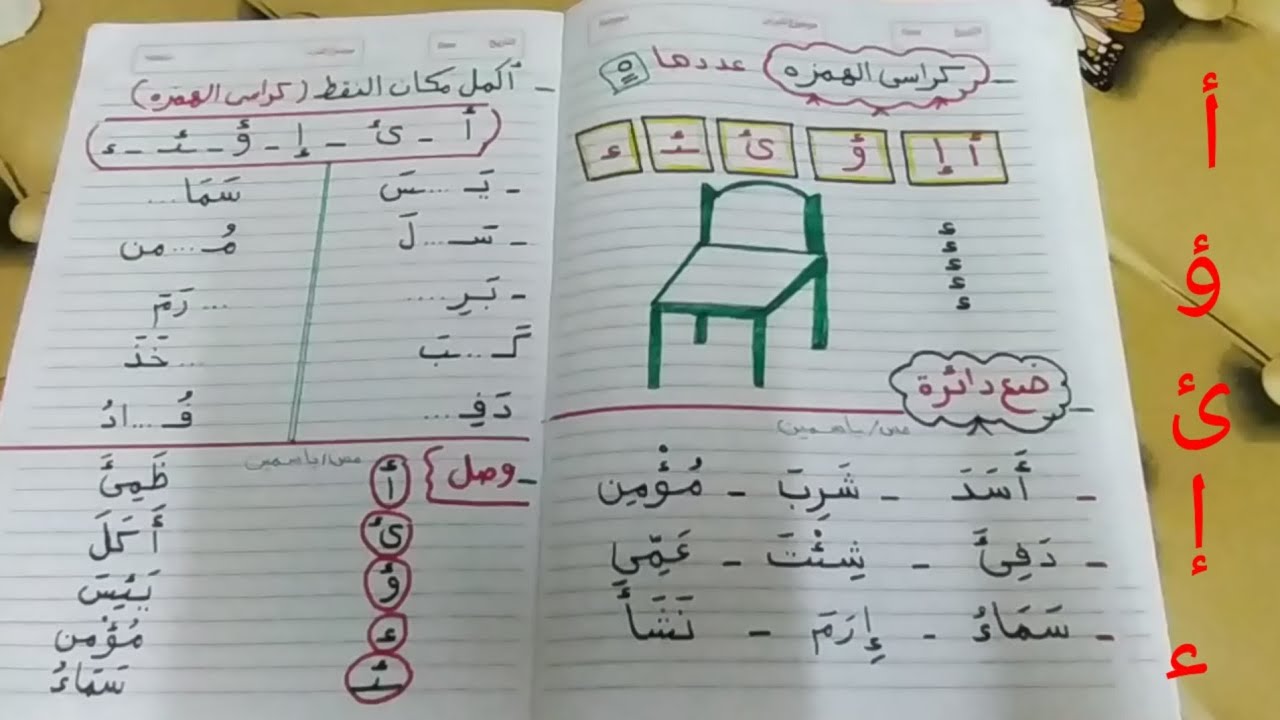 كراسى الهمزه عددها ٥
أ إ ؤ ئ ئـ ء
ء
ء
ء
ء
ء
ضع دائرة
مس/ياسمين
- أَسَدَ - شَرِبَ - مُؤْمِن
- دَفِئَ - شِئْتَ - عَمِّي
- سَمَاءُ - إِرَمَ - نَشَأَ
- أكمل مكان النقط (كراسى الهمزه)
أ - ئ - إ - ؤ - ئـ - ء
- يَـ....ـسَ سَمَا...
- سَـ....لَ مُـ...من
- بَرِ.... ...رَمَ
كَـ...ـبَ ...خَذَ
دَفِـ... فُـ...ادُ
مس/ياسمين
- وصل
أ ظَمِئَ
ئ أَكَلَ
ؤ يَئِسَ
ء مُؤْمن
ئـ سَمَاءُ
أ
ؤ
ئ
إ
ء